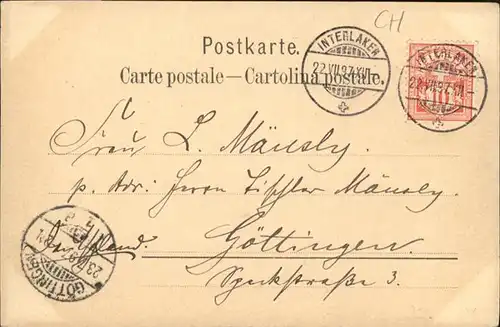 CH
Postkarte.
Carte postale — Cartolina postale.
INTERLAKEN
22.VII.97.XII–
INTERLAKEN
22.VII.97.XII–
10
Frau L. Mänsly.
p. Adr: Herrn Tischler Mänsly.
Deutschland.
Göttingen.
Speckstraße 3.
GÖTTINGEN
23